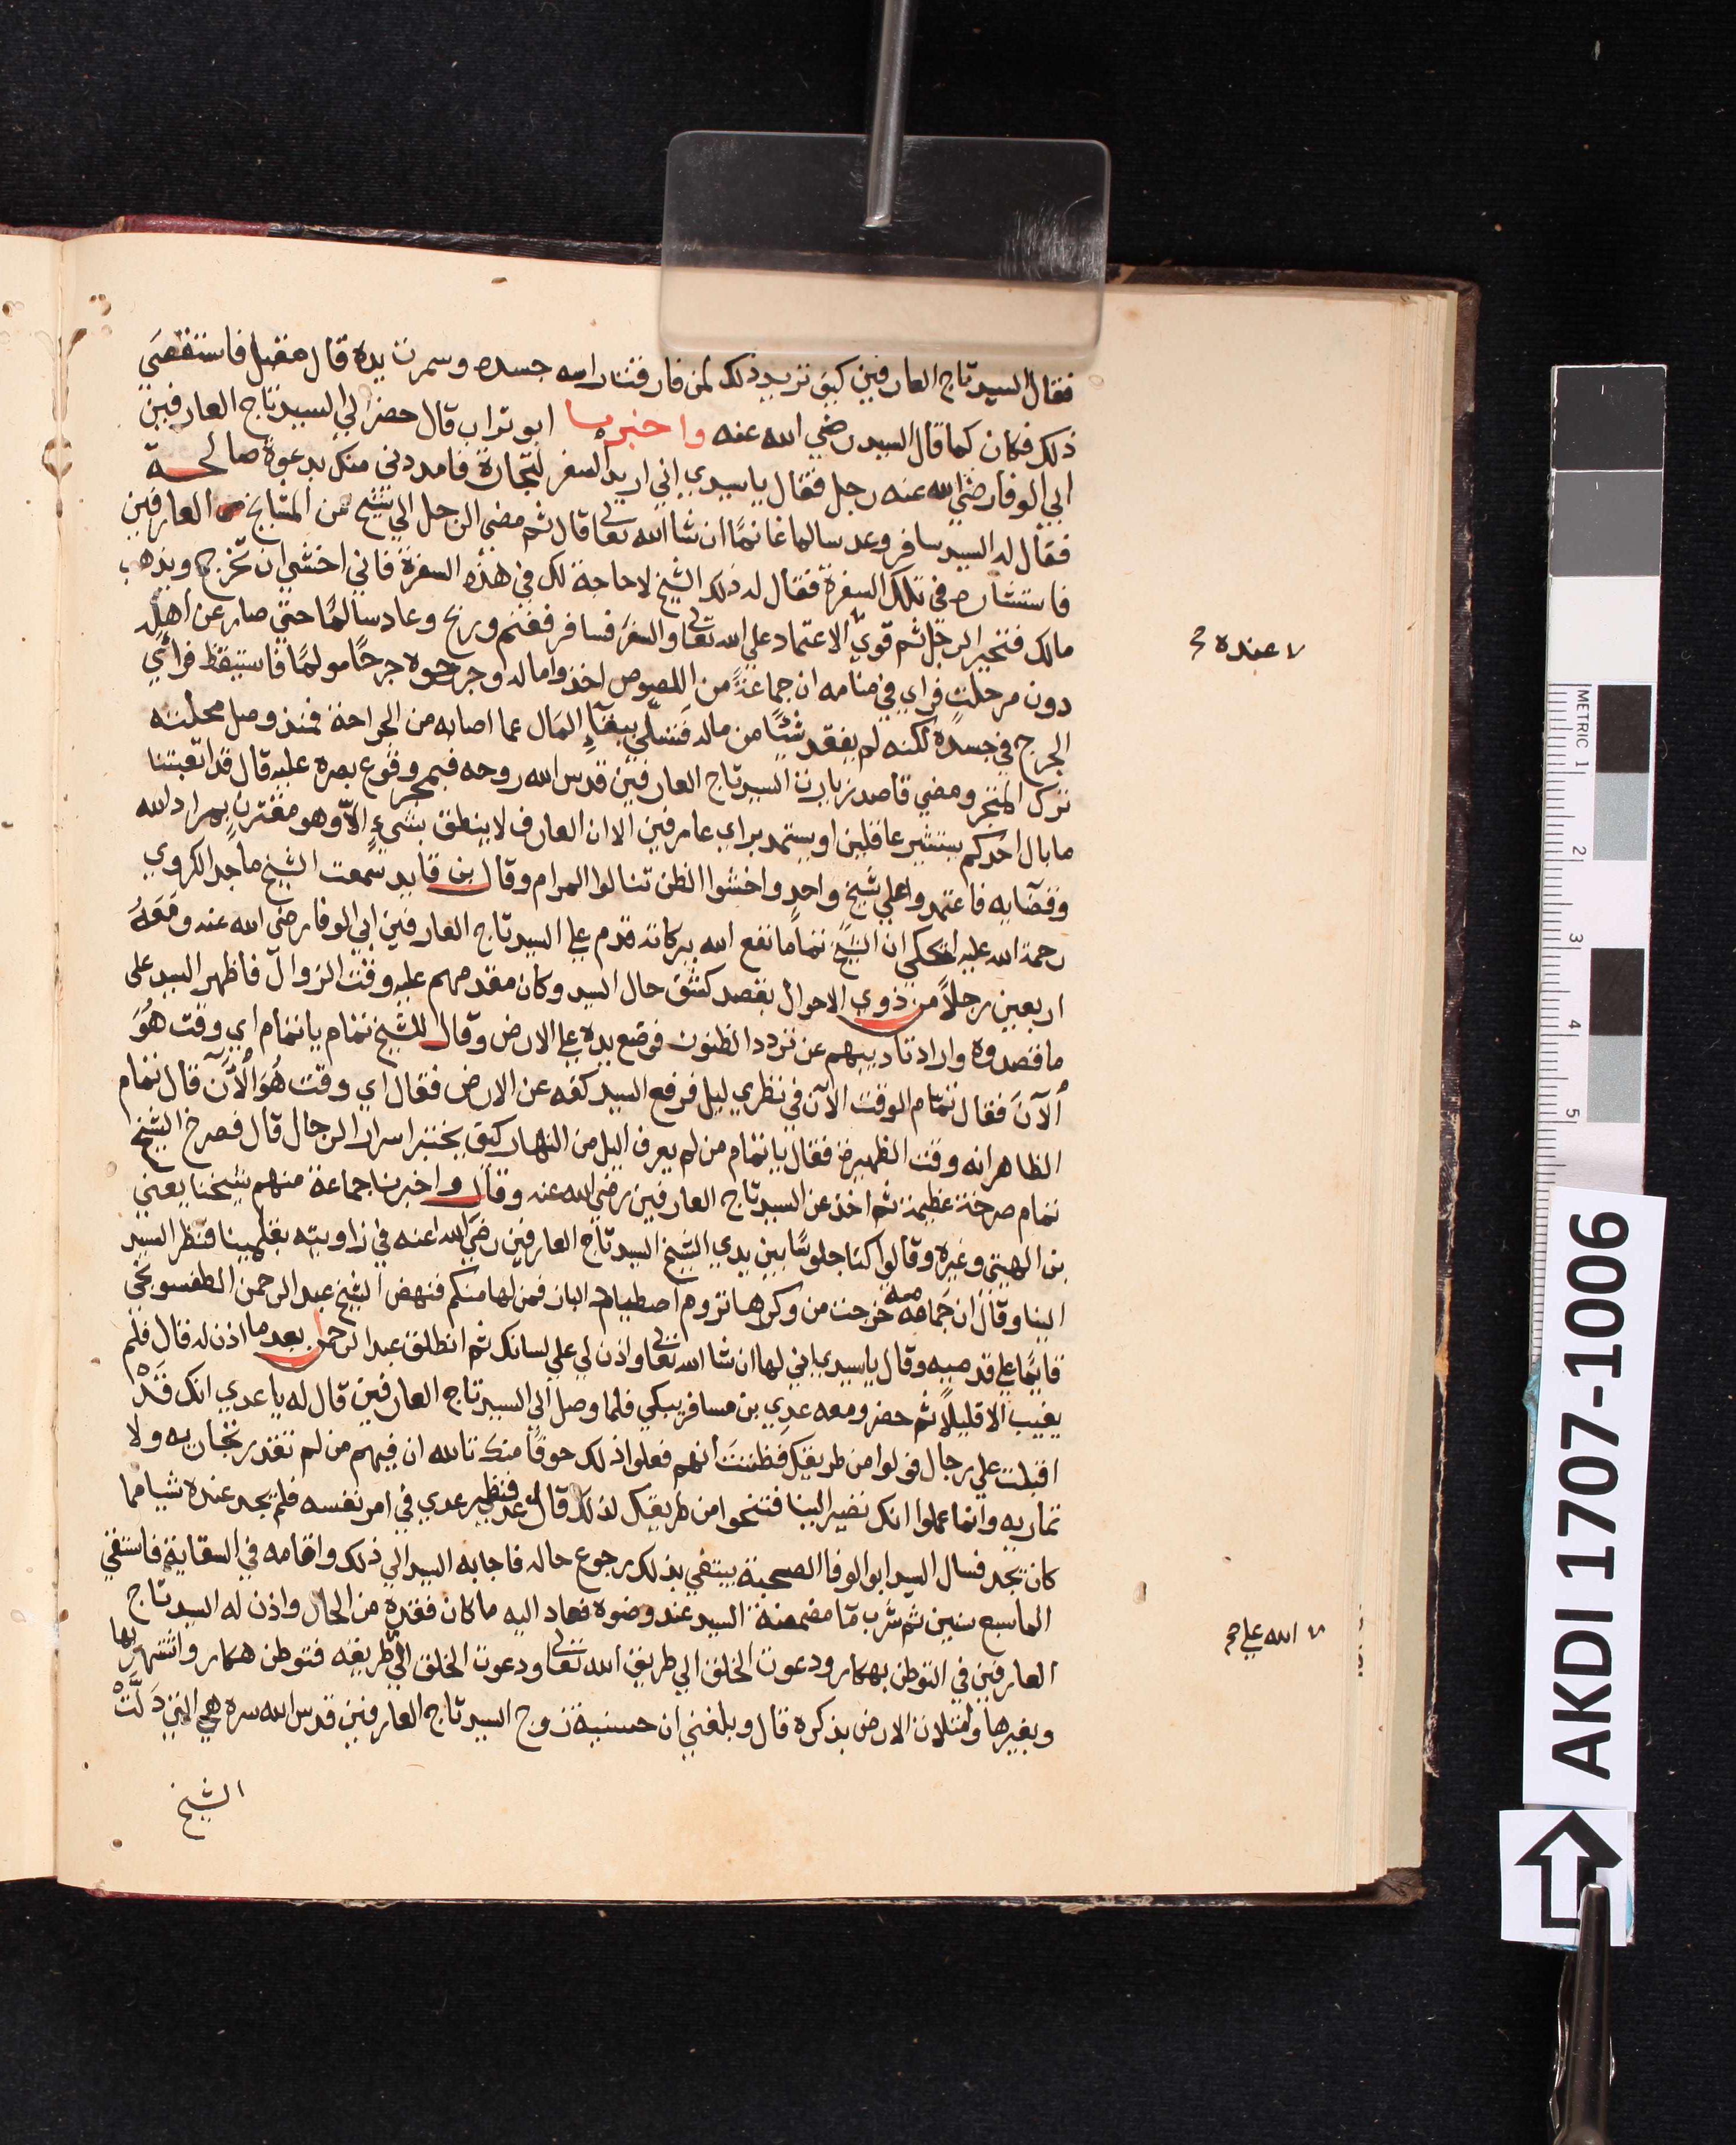 فقال السيد تاج العارفين كيف تريد ذلك لمن فارقت راسه جسده وسمرت يده قال مقبل فاستقصي
ذلك فكان كما قال السيد رضي الله عنه واخبرنا ابو تراب قال حضر الي السيد تاج العارفين
ابي الوفا رضي الله عنه رجل فقال يا سيدي اني اريد السفر لتجارة فامددني منك بدعوة صالحة
فقال له السيد سافر وعد سالما غانمًا ان شا الله تعالى قال ثم مضي الرجل الي شيخ من المشايخ العارفين
فاستشاره في تلك السفرة فقال له ذلك الشيخ لا حاجة لك في هذه السفرة فاني اخشي ان تخرج ويذهب
مالك فتحير الرجل ثم قوي الاعتماد علي الله تعالى والسفر فسافر فغنم وربح وعاد سالمًا حتي صار عن اهله
دون مرحلت فراي في منامه ان جماعةً من اللصوص اخذوا ماله وجرحوه جرحًا مولمًا فاستيقظ فرأي
الجرح في جسده لكنه لم يفقد شيًا من ماله فتسلّي ببقآءِ المال عما اصابه من الجراحة فمنذ وصل محلته
ترك المتجر ومضي قاصد زيارت السيد تاج العارفين قدس الله روحه فبمجر وقوع بصره عليه قال قد اتعبتنا
ما بال احدكم يستشير عاقلين او يستمد براي عارفين الا ان العارف لا ينطق بشيءٍ الّا وهو مقترن بمراد الله
وقضآيه فاعتمدوا علي شيخ واحدٍ واخشوا الظن تنالوا المرام وقال بن قايد سمعت الشيخ ماجد الكروي
رحمة الله عليه يحكي ان الشيخ تماما نفع الله ببركاته قدم علي السيد تاج العارفين ابي الوفا رضي الله عنه ومعهُ
اربعين رجلاً من ذوي الاحوال بقصد كشف حال السيد وكان مقدمهم عليه وقت الزوال فاظهر السيد علي
ما قصدوه واراد تاديبهم عن تردد الظنون فوضع يده علي الارض وقال للشيخ تمام يا تمام اي وقت هُوَ
ألآنَ فقال تمّام الوقت الآن في نظري ليل فرفع السيد كفه عن الارض فقال اي وقت هُوَ الْآن قال تمام
الظاهر انه وقت الظهيرة فقال يا تمام من لم يعرف اليل من النهار كيف يختبر اسرار الرجال قال فصرخ الشيخ
تمام صرخة عظيمة ثم اخذ عن السيد تاج العارفين رضي الله عنه وقال واخبرنا جماعة منهم شيخنا يعني
بن الهيتي وغيره وقالوا كنا جلوسًا بين يدي الشيخ السيد تاج العارفين رضي الله عنه في زاويته بقلمينا فنظر السيد
الينا وقال ان حمامة خرجت من وكرها تروم اصطياد الباز فمن لها منكم فنهض الشيخ عبد الرحمن الطفسونجي
قايمًا علي قدميه وقال يا سيدي اني لها ان شا الله تعالى واذن لي علي لسانك ثم انطلق عبد الرحمن بعد ما اذن له قال فلم
يغيب الا قليلاً ثم حضر ومعه عدي بن مسافر يبكي فلما وصل الي السيد تاج العارفين قال له يا عدي انك قَدْ
اقبلت علي رجال فولوا من طريقك فظننتَ انهم فعلوا ذلك خوفًا منك تالله ان فيهم من لم تقدر تجاريه ولا
تماريه وانما عملوا انك تصير الينا فتنحوا من طريقك لذلك قال فنظر عدي في امر نفسه فلم يجد عنده شيا مما
كان يجد فسال السيد ابو الوفا الصحبة يبتغي بذلك رجوع حاله فاجابه السيد الي ذلك واقامه في السقاية فاستقي
الما سبع سنين ثم شرب مّا مضمضة السيد عند وضوه فعاد اليه ما كان فقده من الحال واذن له السيد تاج
العارفين في التوطن بهكار ودعوت الخلق الي طريق الله تعالى ودعوت الخلق الي طريقه فتوطن هكار واشتهر بها
وبغيرها وامتلات الارض بذكره قال وبلغني ان حسنية زوج السيد تاج العارفين قدس الله سره هي التي دَلَّتْ
الشيخ
عنده
الله علي
METRIC 1 2 3 4 5
AKDI 1707-1006